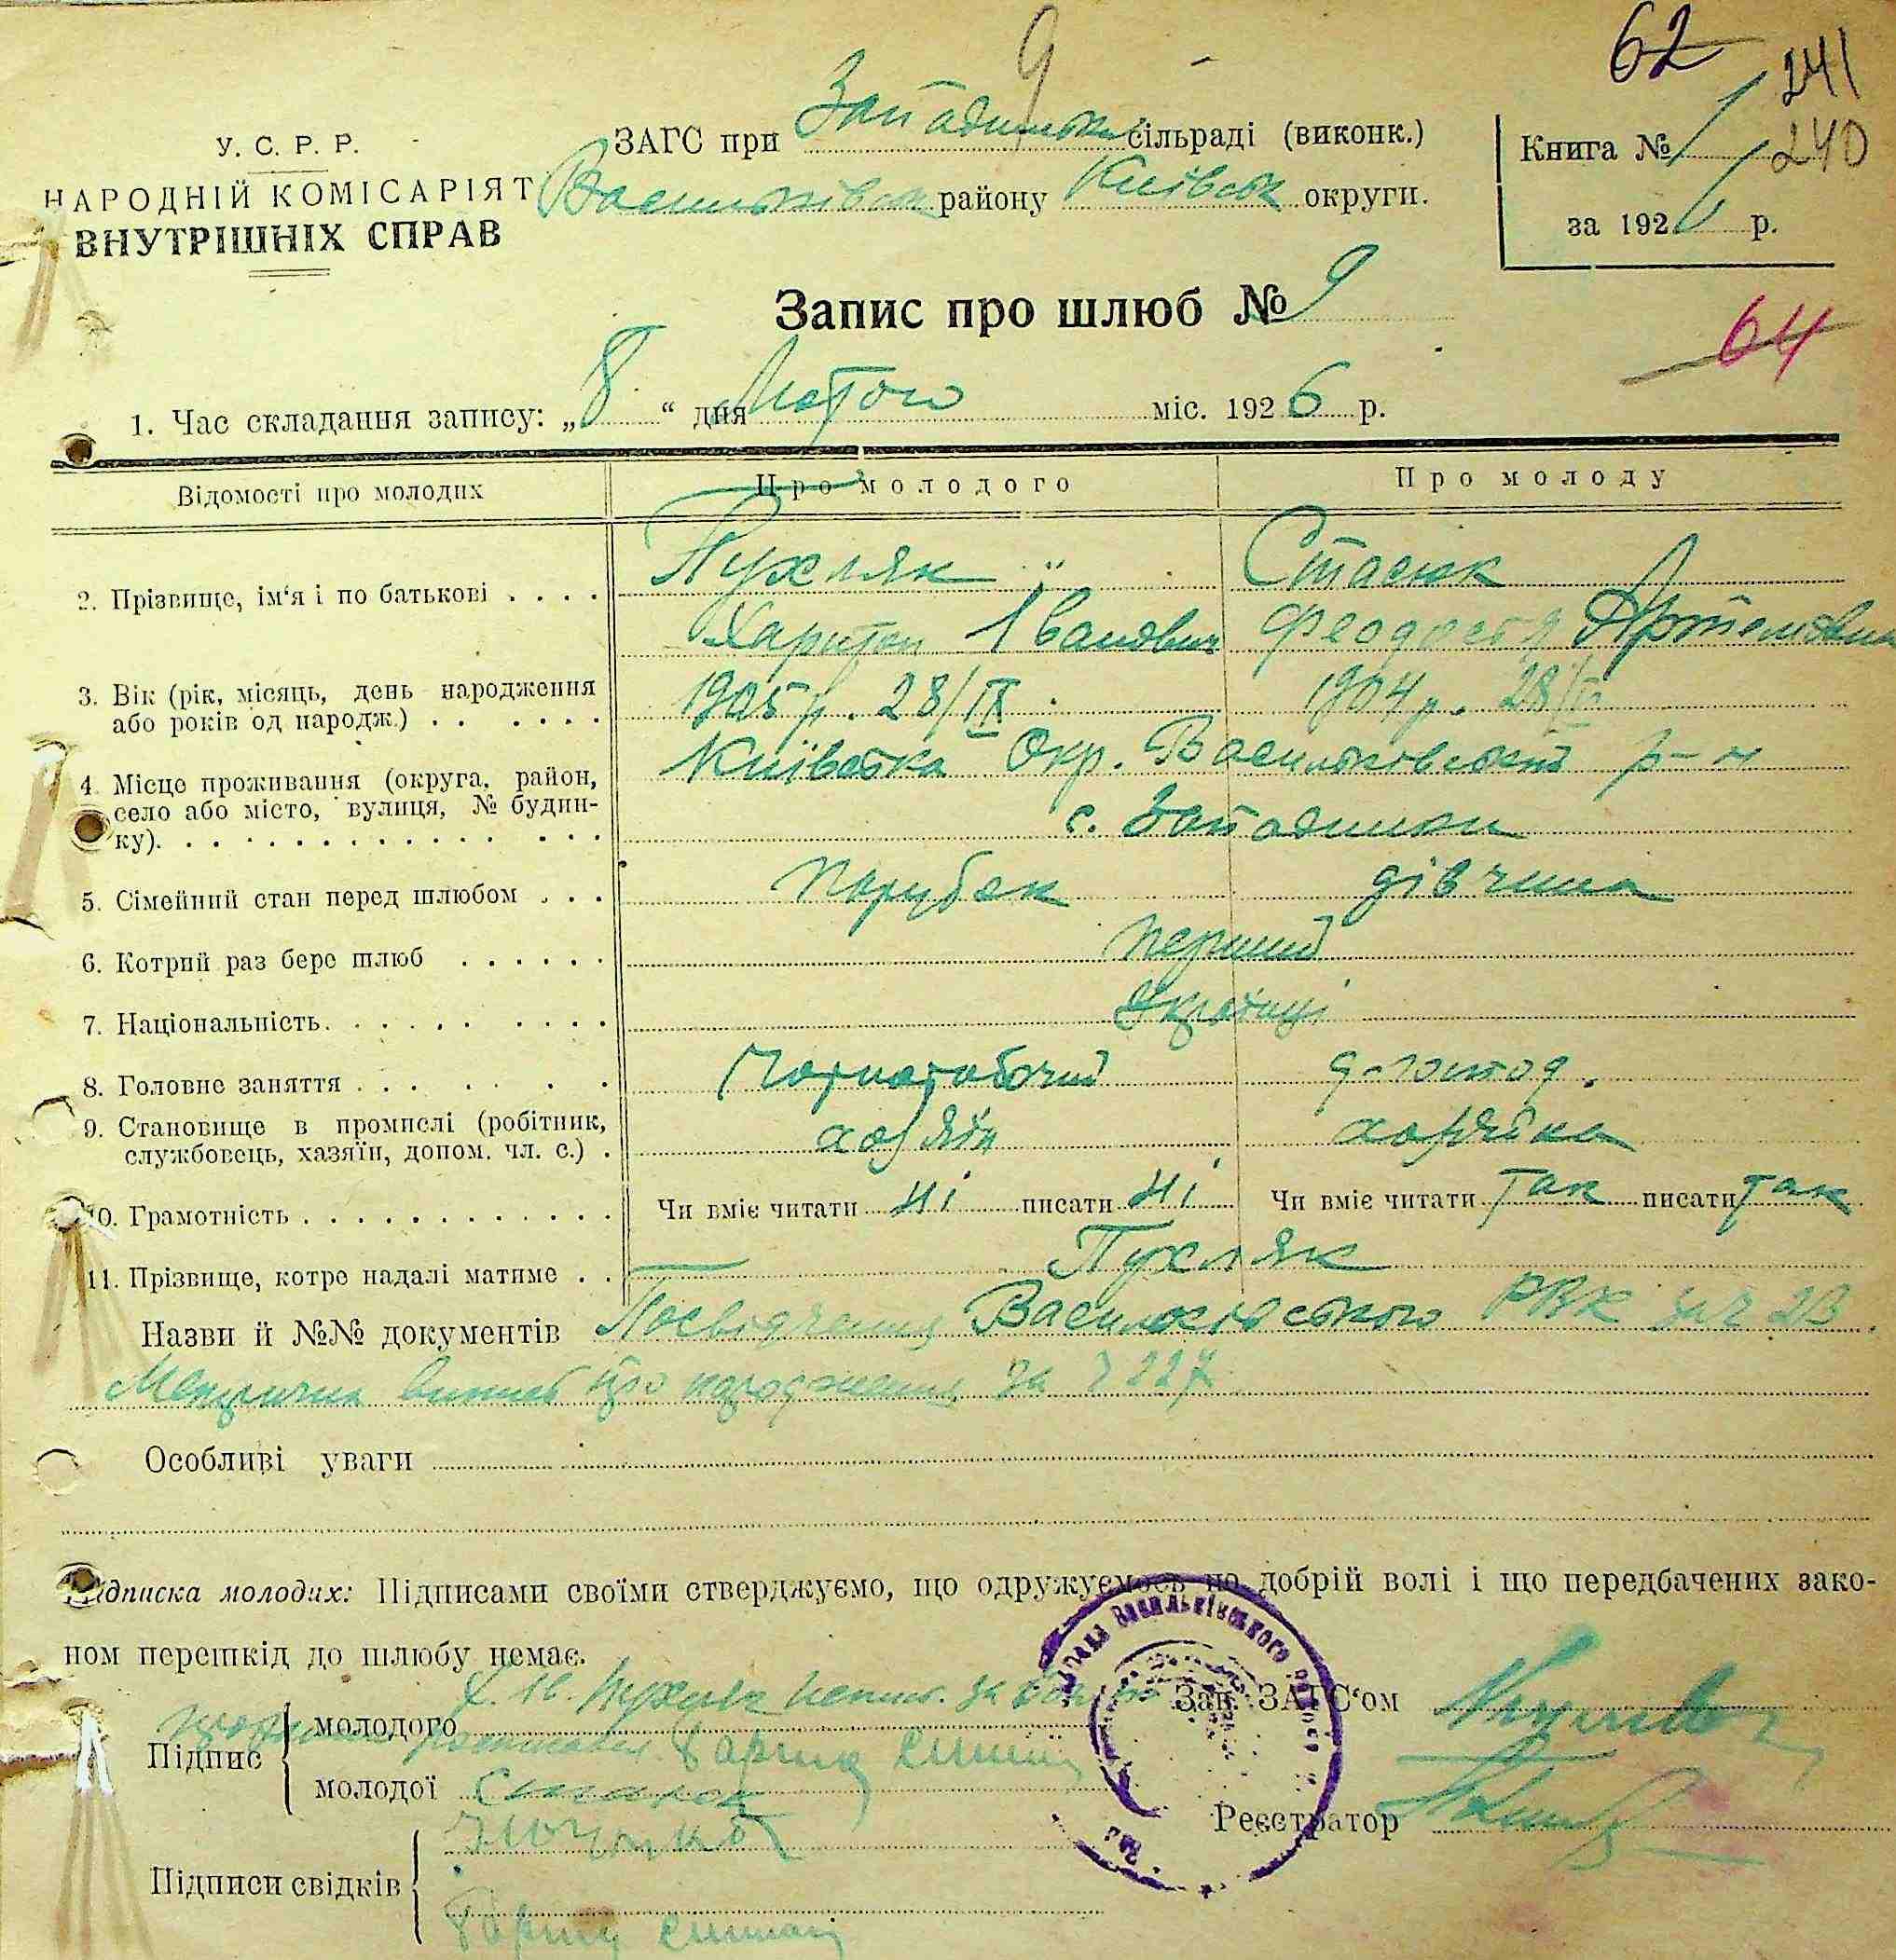 9
62
241
240
У. С. Р. Р.
НАРОДНІЙ КОМІСАРІЯТ
ВНУТРІШНІХ СПРАВ
ЗАГС при Западинськ сільраді (виконк.)
Васильківськ району Київськ округи.
Книга № 1
за 192 р.
Запис про шлюб № 9
64
1. Час складання запису: „8“ дня Лютого міс. 1926 р.
Відомості про молодих Про молодого Про молоду
2. Прізвище, ім‘я і по батькові . . . . Пухляк Стасюк
Харитон Іванович Феодосія Артемовна
3. Вік (рік, місяць, день народження 1905 р. 28/IX 1904 р. 28/
або років од народж.) . . . . . .
4. Місце проживання (округа, район, Київська Окр. Васильковський р-н
село або місто, вулиця, № будин- с. Западинки
ку). . . . . . . . . . . . . . .
5. Сімейний стан перед шлюбом . . . Парубок дівчина
6. Котрий раз бере шлюб . . . . . . Перший
7. Національність. . . . . . . . . . Українці
8. Головне заняття . . . . . . Чорноробочий д-господ.
9. Становище в промислі (робітник, хазяїн хазяйка
службовець, хазяїн, допом. чл. с.) .
10. Грамотність . . . . . . . . . . . . Чи вміє читати ні писати ні Чи вміє читати так писати так
11. Прізвище, котре надалі матиме . . Пухляк
Назви й №№ документів Посвідчення Васильківського РВК за ч 23
Метрична випись про народження за ч 227
Особливі уваги
Підписка молодих: Підписами своїми стверджуємо, що одружуємось по добрій волі і що передбачених зако-
ном перешкід до шлюбу немає.
Підпис
молодого Х. Ів. Пухляк непис. за
молодої Стасюк
Зав. ЗАГС‘ом
Реєстратор
Підписи свідків
Васильківського району